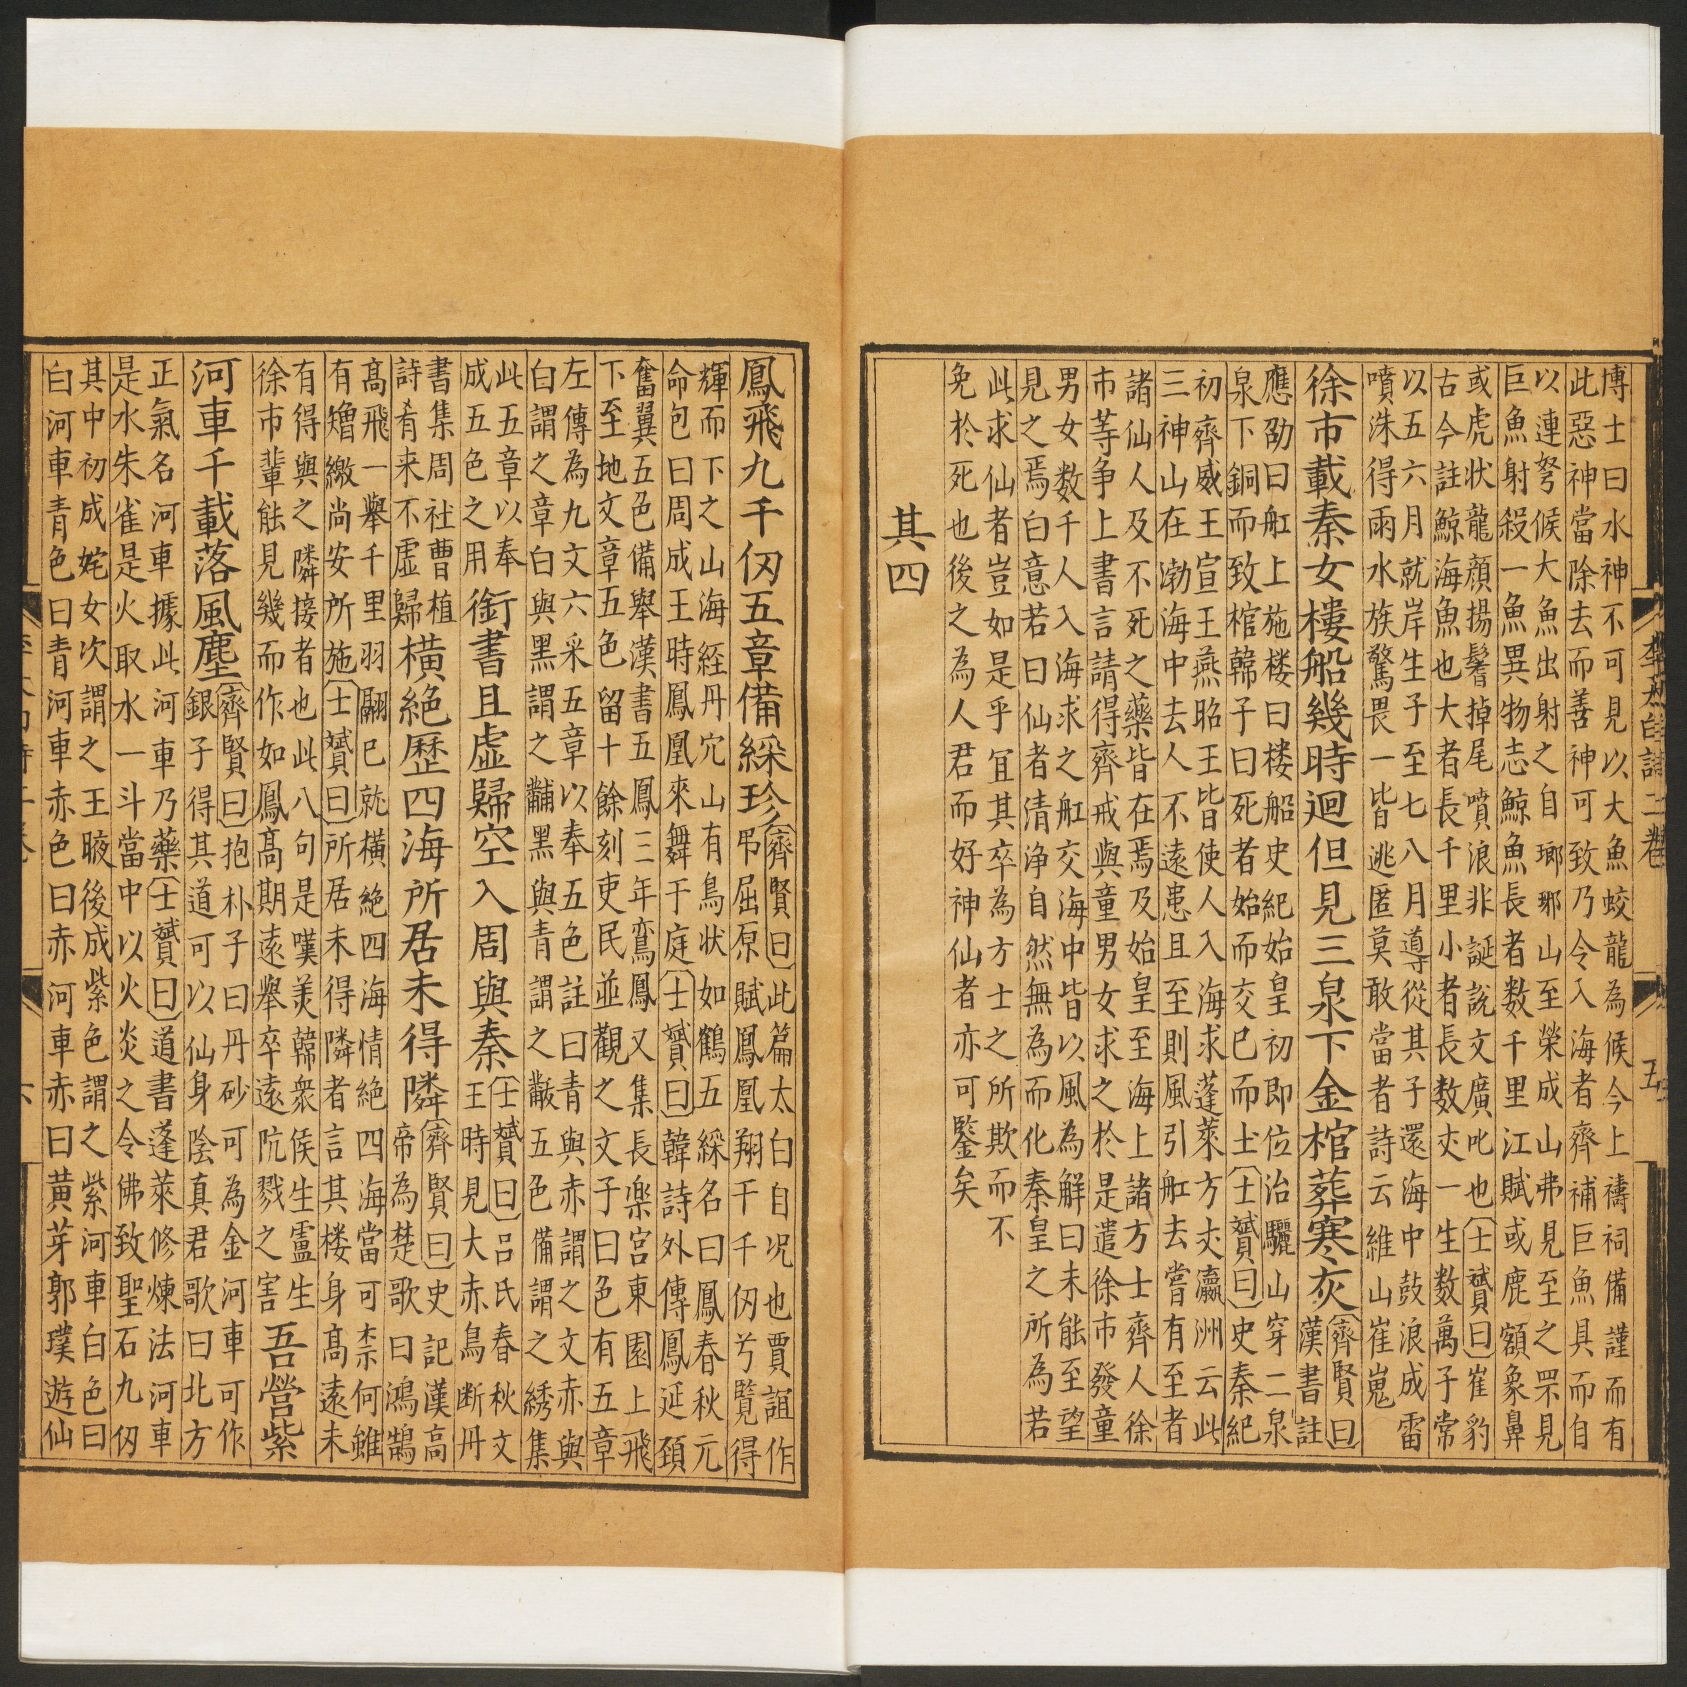 博士曰水神不可見以大魚蛟龍為候今上禱祠備謹而有
此惡神當除去而善神可致乃令入海者齊補巨魚具而自
以連弩候大魚出射之自瑯琊山至榮成山弗見至之罘見
巨魚射殺一魚異物志鯨魚長者数千里江賦或鹿額象鼻
或虎状龍顔揚鬐掉尾噴浪非誕説文廣吪也士贇曰崔豹
古今註鯨海魚也大者長千里小者長数丈一生数萬子常
以五六月就岸生子至七八月導從其子還海中鼓浪成雷
噴洙得雨水族驚畏一皆逃匿莫敢當者詩云維山崔嵬
徐市載秦女樓船幾時迴但見三泉下金棺葬寒灰齊賢曰漢書註
應劭曰舡上施楼曰楼船史紀始皇初即位治驪山穿二泉
泉下銅而致棺韓子曰死者始而交已而土士贇曰史秦紀
初齊威王宣王燕昭王皆使人入海求蓬萊方丈瀛洲云此
三神山在渤海中去人不遠患且至則風引舡去嘗有至者
諸仙人及不死之藥皆在焉及始皇至海上諸方士齊人徐
市等争上書言請得齊戒與童男女求之於是遣徐市發童
男女数千人入海求之舡交海中皆以風為解曰未能至望
見之焉白意若曰仙者清浄自然無為而化秦皇之所為若
此求仙者豈如是乎冝其卒為方士之所欺而不
免於死也後之為人君而好神仙者亦可鑒矣
其四
鳳飛九千仞五章備綵珍齊賢曰此篇太白自况也賈誼作
弔屈原賦鳳凰翔千千仞兮覽得
輝而下之山海經丹穴山有鳥状如鶴五綵名曰鳳春秋元
命包曰周成王時鳳凰來舞于庭士贇曰韓詩外傳鳳延頚
奮翼五色備舉漢書五鳳三年鸞鳳又集長楽宮東園上飛
下至地文章五色留十餘刻吏民並觀之文子曰色有五章
左傳為九文六采五章以奉五色註曰青與赤謂之文赤與
白謂之章白與黑謂之黼黑與青謂之黻五色備謂之綉集
此五章以奉
成五色之用銜書且虚歸空入周與秦士贇曰呂氏春秋文
王時見大赤鳥断丹
書集周社曹植
詩肴来不虚歸横絶歷四海所居未得隣齊賢曰史記漢高
帝為楚歌曰鴻鵠
高飛一舉千里羽翮已就横絶四海情絶四海當可柰何雖
有矰繳尚安所施士贇曰所居未得隣者言其棲身高遠未
有得與之隣接者也此八句是嘆羡韓衆侯生盧生
徐市輩能見幾而作如鳳高期遠舉卒遠阬戮之害吾營紫
河車千載落風塵齊賢曰抱朴子曰丹砂可為金河車可作
銀子得其道可以仙身陰真君歌曰北方
正氣名河車據此河車乃藥士贇曰道書蓬萊修煉法河車
是水朱雀是火取水一斗當中以火炎之令佛致聖石九仞
其中初成姹女次謂之玉腋後成紫色謂之紫河車白色曰
白河車青色曰青河車赤色曰赤河車赤曰黄芽郭璞遊仙